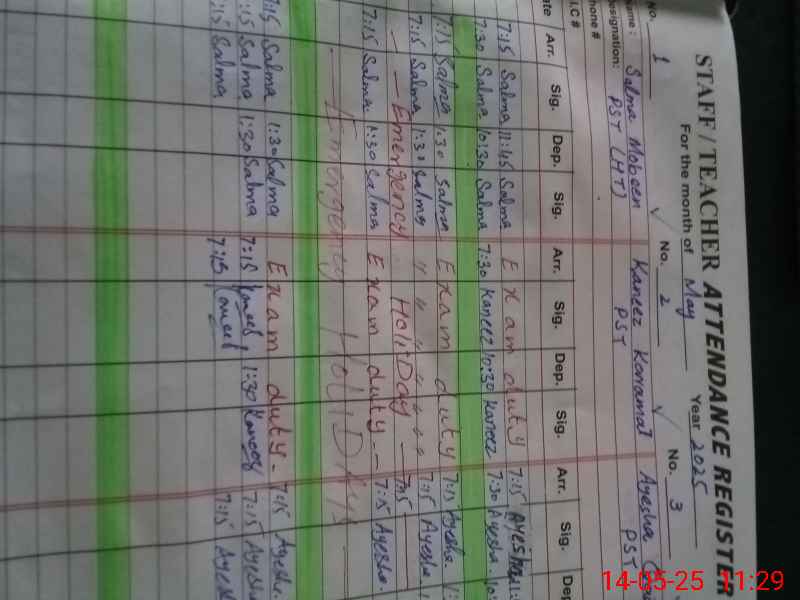 STAFF / TEACHER ATTENDANCE REGISTER
For the month of May Year 2025
No. 1 No. 2 No. 3
Name: Salma Mobeen Kaneez Karamat Ayesha
Designation: PST (HT) PST PST
Phone #
Arr. Sig. Dep. Sig. Arr. Sig. Dep. Sig. Arr. Sig.
7:15 Salma 11:45 Salma Exam duty 7:15 Ayesha
7:30 Salma 10:30 Salma 7:30 Kaneez 10:30 Kaneez 7:30 Ayesha
7:15 Salma 1:30 Salma Exam duty 7:15 Ayesha
7:15 Salma 1:30 Salma " " " " " " 7:15 Ayesha
Emergency HoliDay 7:15
7:15 Salma 1:30 Salma Exam duty 7:15 Ayesha
Emergency HoliDays
7:15 Salma 1:30 Salma Exam duty 7:15 Ayesha
7:15 Salma 1:30 Salma 7:15 Kaneez 1:30 Kaneez 7:15 Ayesha
7:15 Salma 7:15 Kaneez 7:15 Ayesha
14-05-25 11:29